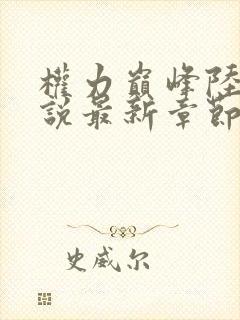 權力巔峰陸
說最新章節
史威尔